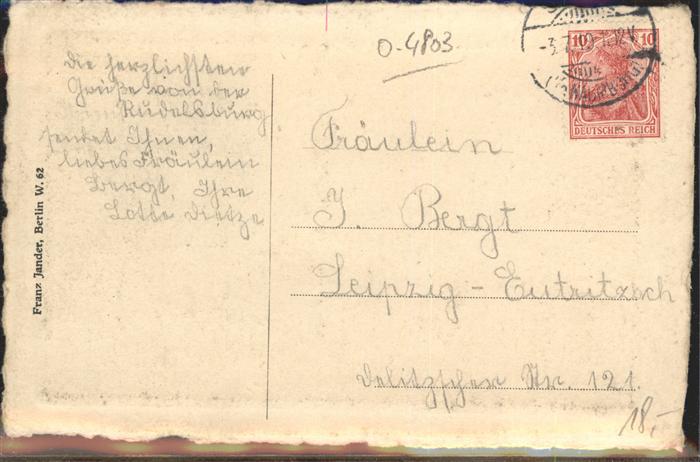 Die herzlichsten
Grüße von der
Rudelsburg
sendet Ihnen,
liebes Fräulein
Bergt, Ihre
Lotte Dietze
Franz Jander, Berlin W. 62
0-4803
10 10
DEUTSCHES REICH
Fräulein
J. Bergt
Leipzig-Eutritzsch
Delitzscher Str. 121.
18,-